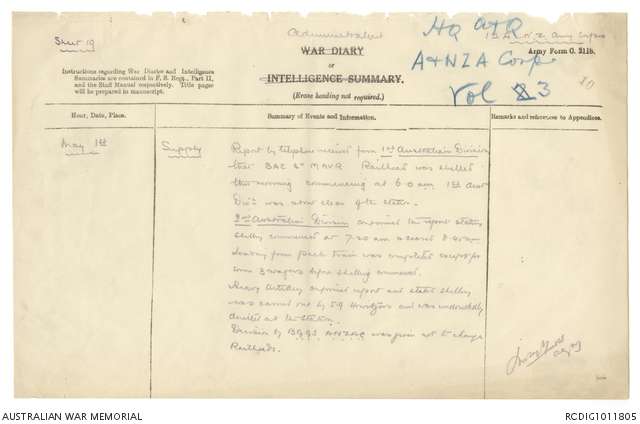 Administrative
Sheet 19
HQ A & Q
A & NZA Corps
Vol 3
1st A. & N.Z. Army Corps
WAR DIARY
OR
INTELLIGENCE SUMMARY.
(Erase heading not required.)
Army Form C. 2118.
Instructions regarding War Diaries and Intelligence
Summaries are contained in F. S. Regs., Part II,
and the Staff Manual respectively. Title pages
will be prepared in manuscript.
Hour, Date, Place.
Summary of Events and Information.
Remarks and references to Appendices.
May 1st
Supply
Report by telephone received from 1st Australian Division
that BAC St MAUR Railhead was shelled
this morning commencing at 6.0 am 1st Aust
Divn was clear of the station.
2nd Australian Division confirmed the report stating
shelling commenced at 7.20 am ceased 8.40 am
loading from pack train was completed except for
some 3 wagons before shelling commenced.
Heavy Artillery confirmed report and stated shelling
was carried out by 5.9 Howitzers and was undoubtedly
directed at the Station.
Decision by BGGS ANZAC was given not to change
Railheads.
AUSTRALIAN WAR MEMORIAL
RCDIG1011805